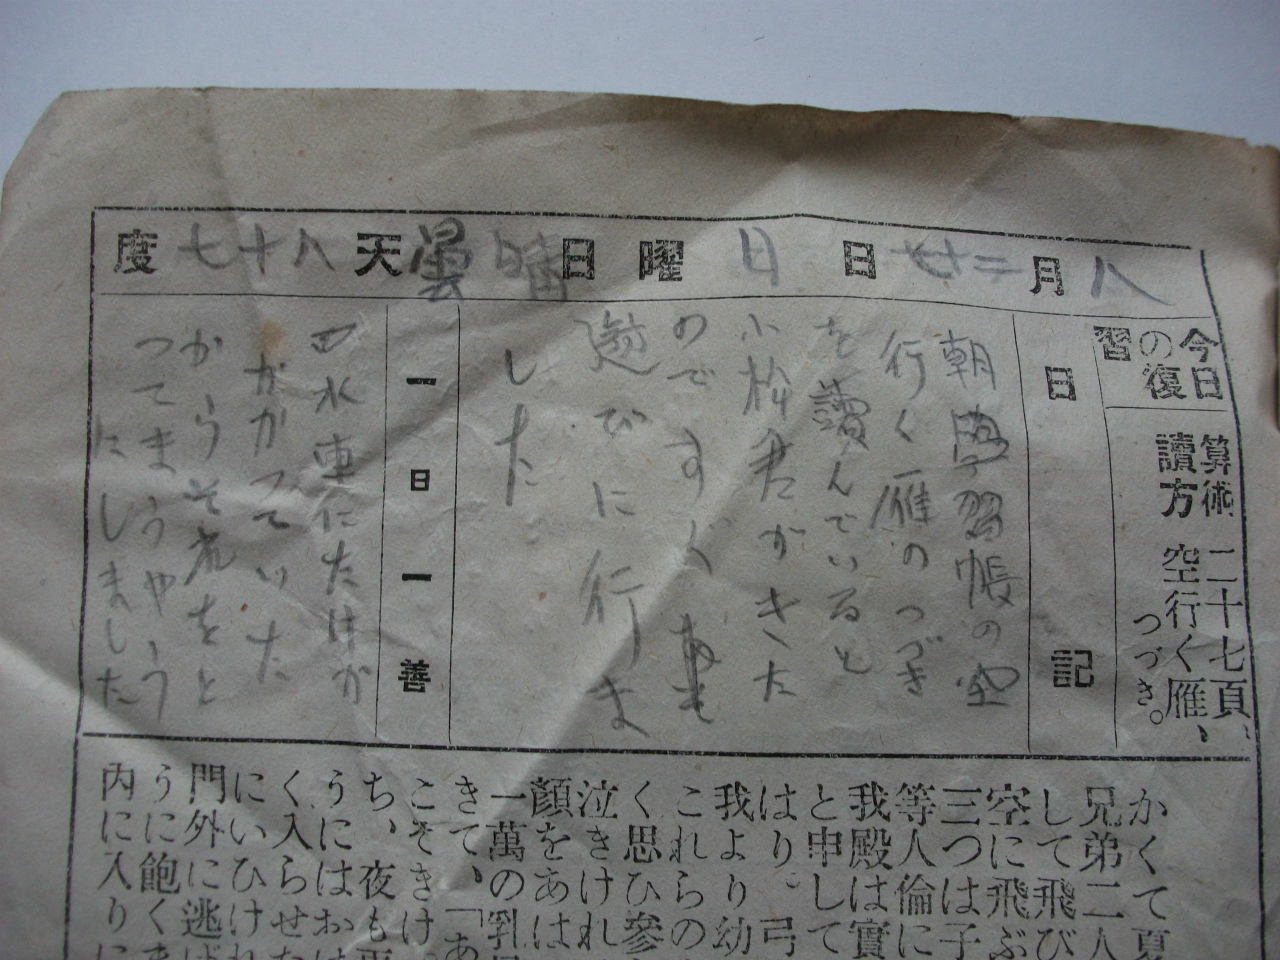 八月二十七日 日曜日 晴曇天 八十七度
今日の復習
算術 二十七頁、
讀方 空行く雁、
つづき。
日記
朝學習帳の空
行く雁のつづき
を讀んでいると
小林君がきた
のですぐ
遊びに行きま
した
一日一善
水車にたけが
かかつていた
からそれをと
つてまうやう
にしました
かくて夏
兄弟二人
して飛び
空に飛ぶ
三つは子
等人倫に
我殿は實
と申して
はり。弓
我より幼
これらの
く思ひ參
泣きけれ
顏をあは
一萬の乳
きて、「あ
こそきけ
ち、夜も更
うにはおは
く入らせた
にいひけれ
門外に逃げ
うに飽くま
内に入りに